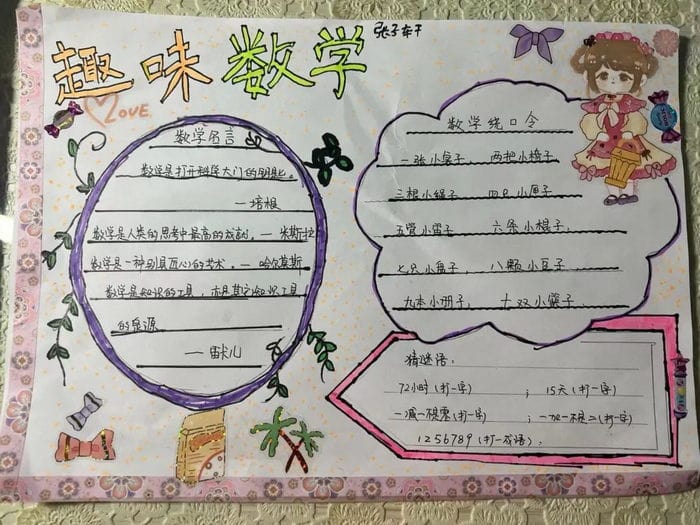 趣味数学
张子轩
LOVE.
数学名言
数学是打开科学大门的钥匙。
— 培根
数学是人类的思考中最高的成就。— 米斯拉
数学是一种别具匠心的艺术。— 哈尔莫斯
数学是知识的工具,亦是其它知识工具
的泉源
— 笛卡儿
数学绕口令
一张小桌子、 两把小椅子
三根小绳子 四只小匣子
五管小笛子 六条小棍子、
七只小盘子、 八颗小豆子
九本小册子、 十双小筷子、
猜谜语:
72小时(打一字) ; 15天(打一字)
一减一不是零(打一字) ; 一加一不是二(打一字)
1256789(打一成语):